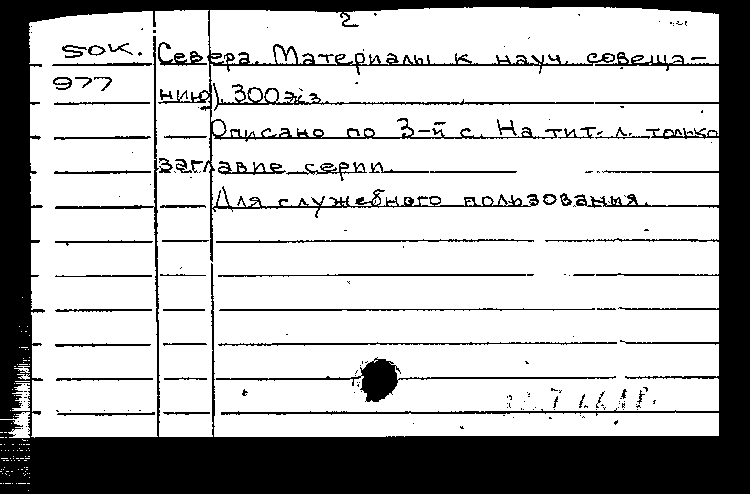 2
SOK. Севера. Материалы к науч. совеща-
977 нию). 300 экз.
Описано по 3-й с. На тит. л. только
заглавие серии.
Для служебного пользования.